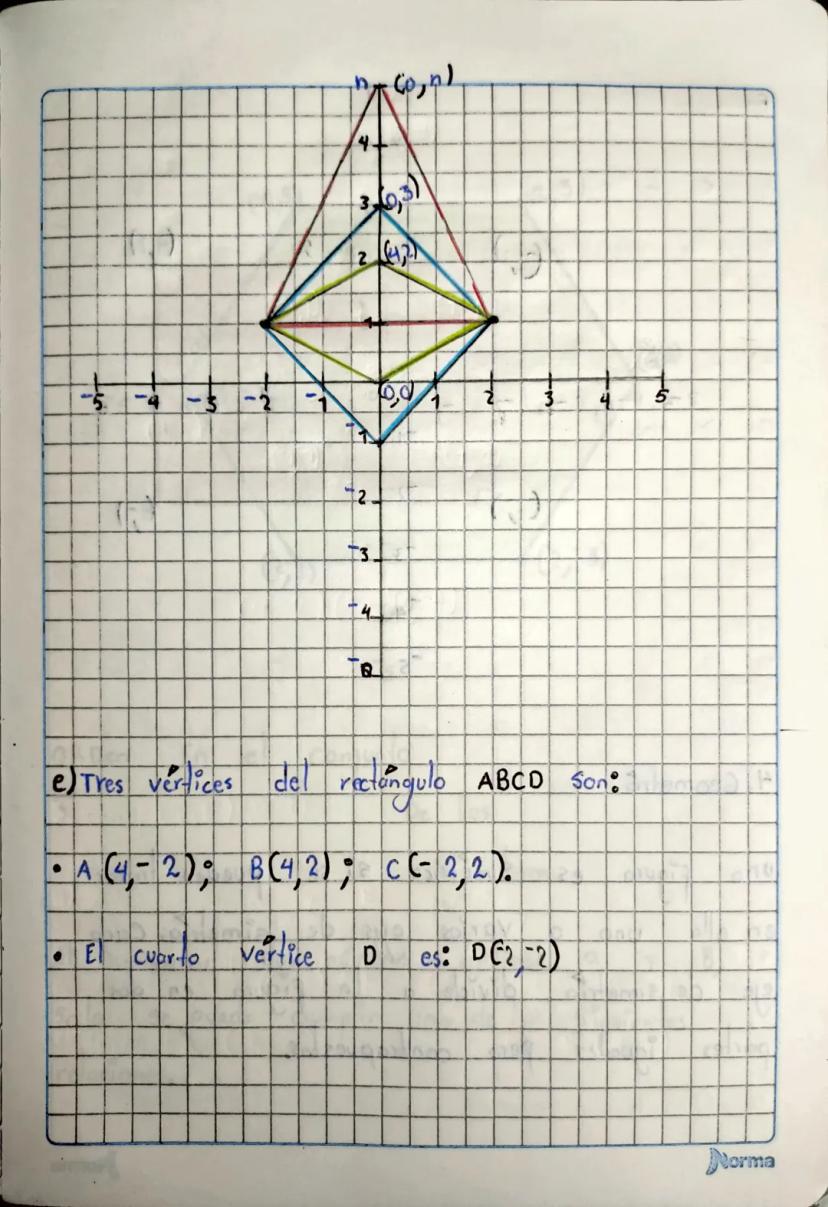 n (0,n)
4
3 (0,3)
2 (4,2)
1
-5 -4 -3 -2 -1 0,0 1 2 3 4 5
-1
-2
-3
-4
e) Tres vértices del rectángulo ABCD son:
• A (4,- 2); B(4,2); C(- 2,2).
• El cuarto vértice D es: D(-2,-2)
Norma